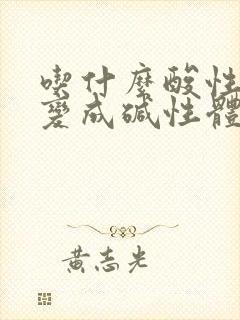 喫什麼酸性
變成碱性體
黃志光